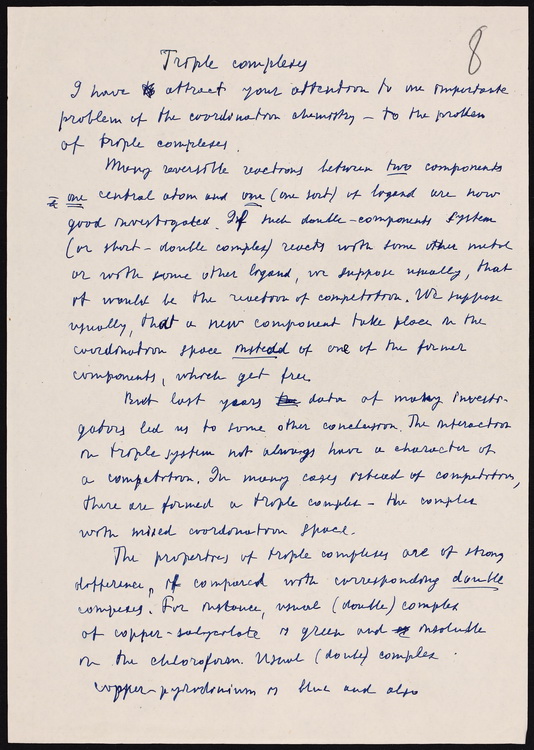 8
Triple complexes
I have to attract your attention to one importante
problem of the coordination chemistry – to the problem
of triple complexes.
Many reversible reactions between two components
– one central atom and one (one sort) of ligand are now
good investigated. If such double-components system
(or short – double complex) reacts with some other metal
or with some other ligand, we suppose usually, that
it would be the reaction of competition. We suppose
usually, that a new component take place in the
coordination space instead of one of the former
components, which get free.
But last years data of many investi-
gators led us to some other conclusion. The interaction
in triple system not always have a character of
a competition. In many cases instead of competition,
there are formed a triple complex – the complex
with mixed coordination space.
The properties of triple complexes are of strong
difference, if compared with corresponding double
complexes. For instance, usual (double) complex
of copper-salycilate is green and insoluble
in the chloroform. Usual (double) complex
copper-pyridinium is blue and also